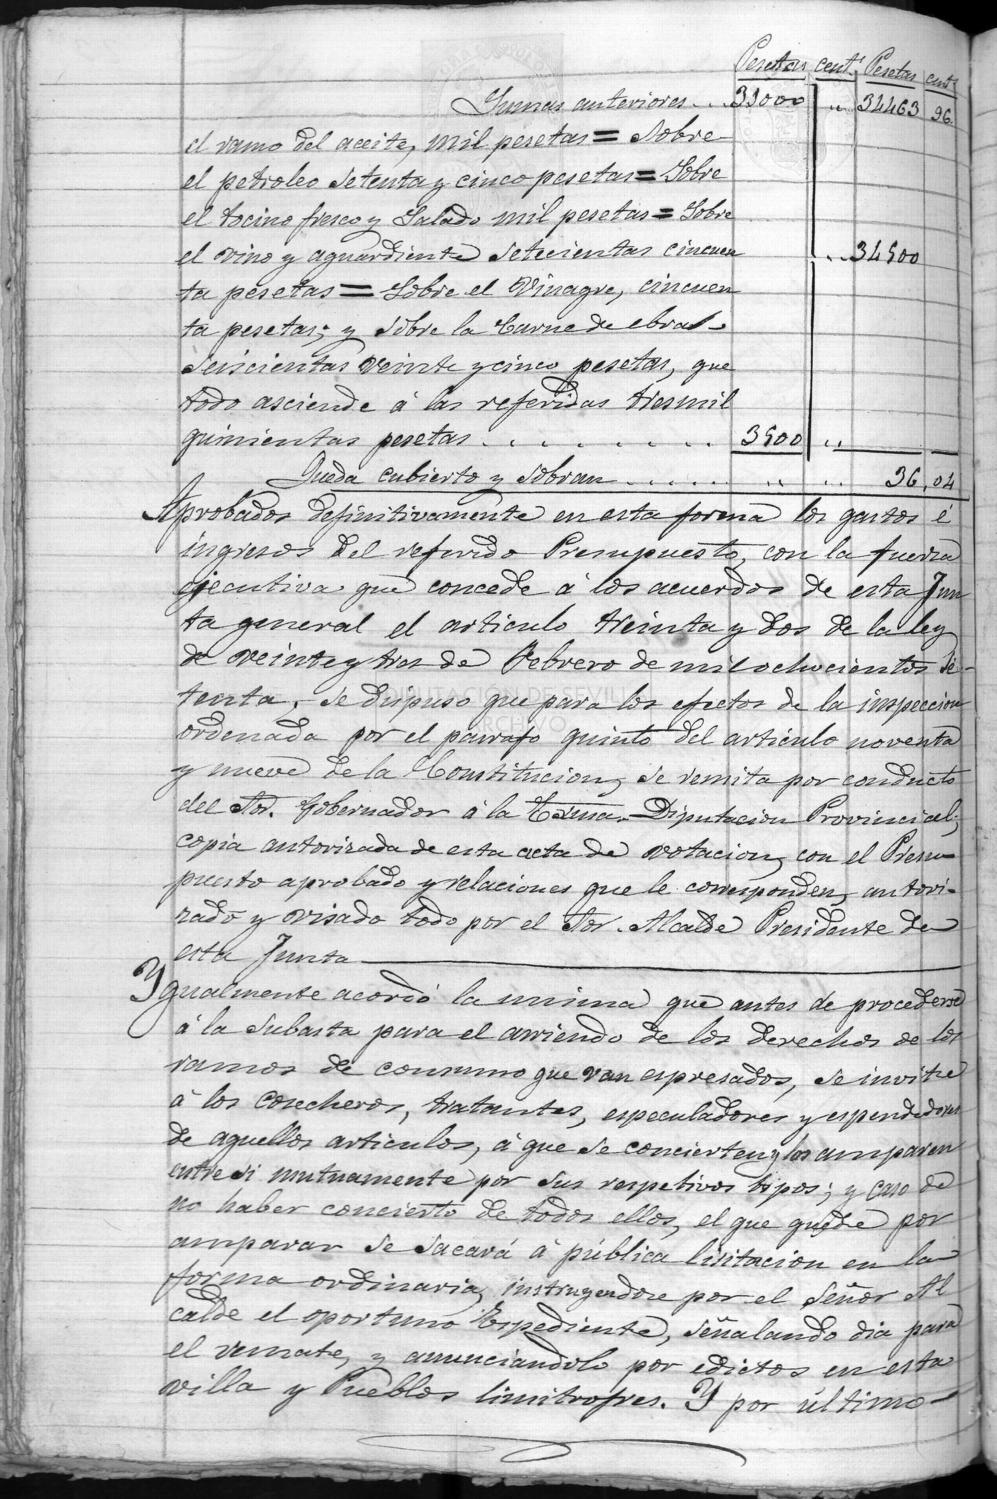 Pesetas cent.s Pesetas cent.s
Sumas anteriores . . 31000 " 34463 96.
el ramo del aceite, mil pesetas = Sobre
el petroleo setenta y cinco pesetas = Sobre
el tocino fresco y salado mil pesetas = Sobre
el vino y aguardiente setecientas cincuen " 34500
ta pesetas = Sobre el vinagre, cincuen
ta pesetas; y sobre la carne de ebra
seiscientas veinte y cinco pesetas, que
todo asciende á las referidas tres mil
quinientas pesetas . . . . . . . 3500 "
Queda cubierto y sobran . . . . . " " 36.04
Aprobados definitivamente en esta forma los gastos é
ingresos del referido Presupuesto, con la fuerza
ejecutiva que concede á los acuerdos de esta Jun
ta general el articulo treinta y dos de la ley
de veinte y tres de Febrero de mil ochocientos se-
tenta, se dispuso que para los efectos de la inspeccion
ordenada por el parrafo quinto del articulo noventa
y nueve de la Constitucion, se remita por conducto
del Sor. Gobernador á la Exma. Diputacion Provincial,
copia autorizada de esta acta de votacion, con el Presu-
puesto aprobado y relaciones que le corresponden, autori-
zado y visado todo por el Sor. Alcalde Presidente de
esta Junta
Ygualmente acordó la misma que antes de procederse
á la subasta para el arriendo de los derechos de los
ramos de consumo que van espresados, se invite
á los cosecheros, tratantes, especuladores y espendedores
de aquellos articulos, á que se concierten y los amparen
entre si mutuamente por sus respetivos tipos; y caso de
no haber concierto de todos ellos, el que quede por
amparar se sacará á pública lisitacion en la
forma ordinaria, instruyendose por el Señor Al
calde el oportuno Espediente, señalando dia para
el remate, y anunciandolo por edictos en esta
villa y Pueblos limitrofres. Y por último
DIPUTACION DE SEVILLA
ARCHIVO